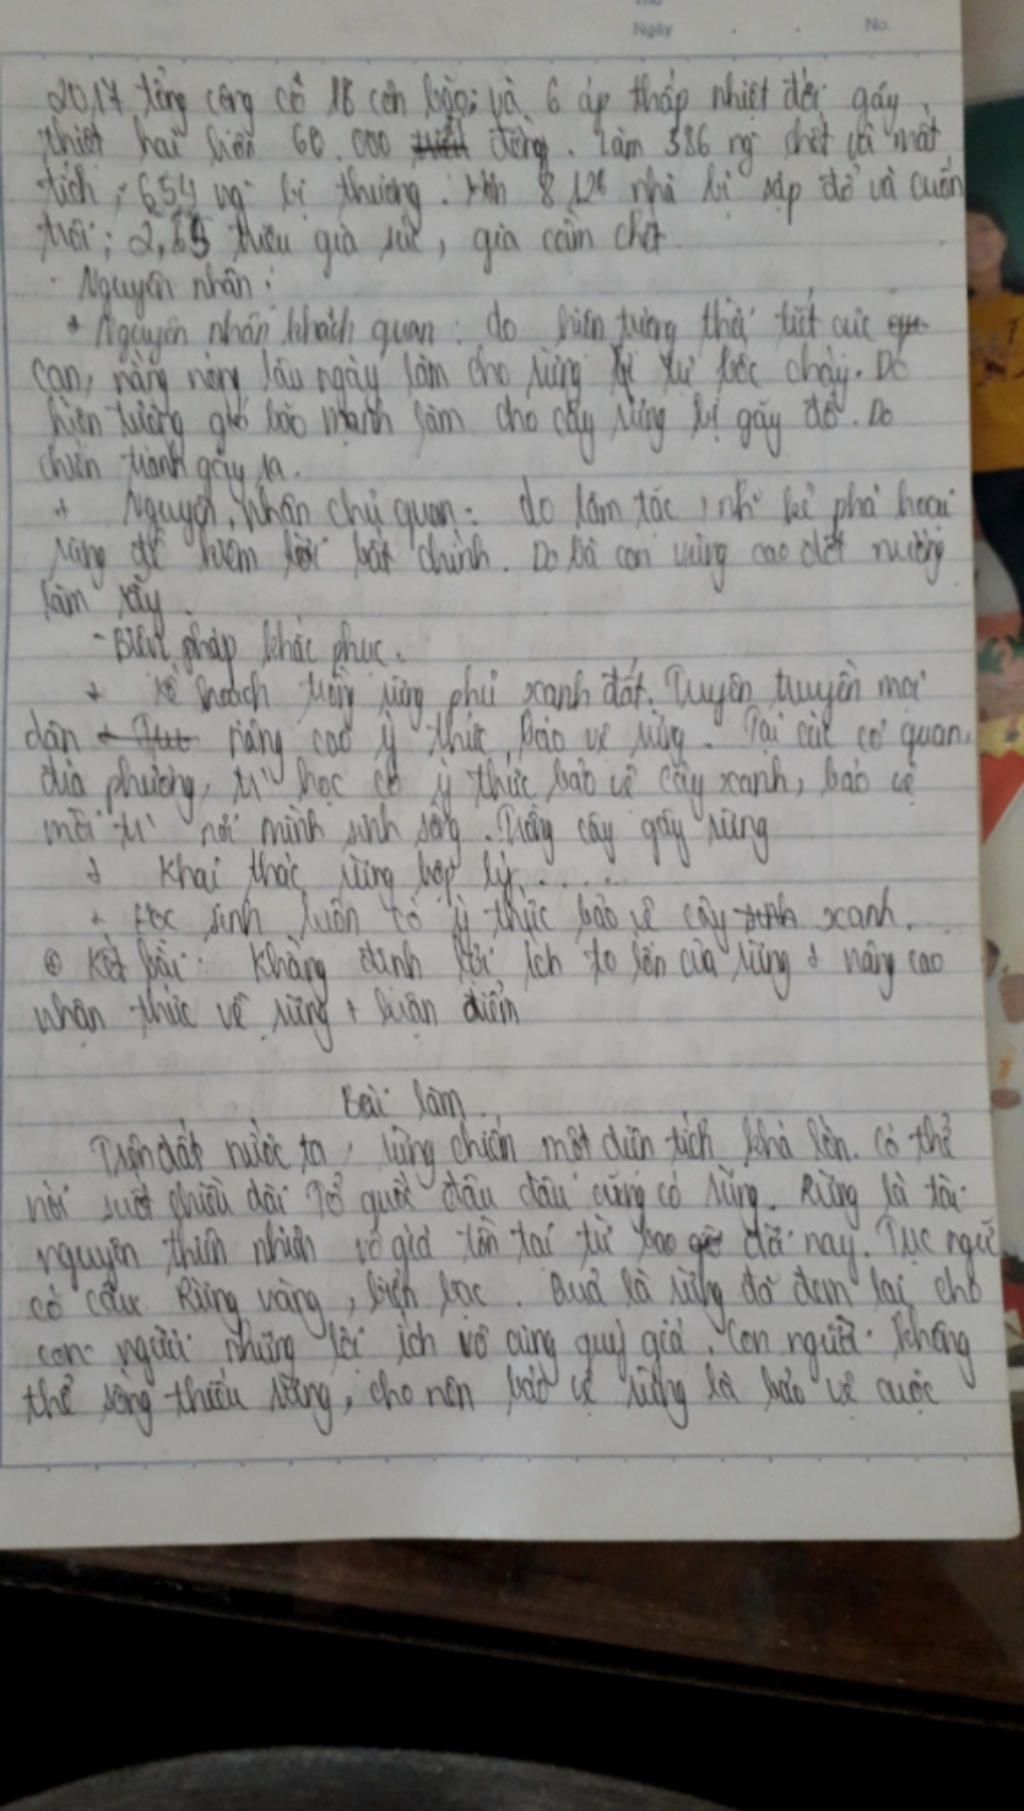 Ngày No.
2017 tổng cộng có 16 cơn bão; và 6 áp thấp nhiệt đới gây
thiệt hại hơn 60.000 đồng. Làm 386 ng chết và mất
tích; 654 ng bị thương. Hơn 8 126 nhà bị sập đổ và cuốn
trôi; triệu gia súc, gia cầm chết
- Nguyên nhân:
+ Nguyên nhân khách quan: do hiện tượng thời tiết cực
cạn, nắng nóng lâu ngày làm cho rừng bị tự bốc cháy. Do
hiện tượng gió bão mạnh làm cho cây rừng bị gãy đổ. Do
chiến tranh gây ra.
+ Nguyên nhân chủ quan: do lâm tặc, nh~ kẻ phá hoại
rừng để kiếm lời bất chính. Do bà con vùng cao đốt nương
làm rẫy.
- Biện pháp khắc phục.
+ Kế hoạch trồng rừng phủ xanh đất. Tuyên truyền mọi
dân nâng cao ý thức bảo vệ rừng. Tại các cơ quan,
địa phương, tr` học có ý thức bảo vệ cây xanh, bảo vệ
môi tr` nơi mình sinh sống. Trồng cây gây rừng
+ Khai thác rừng hợp lý.....
+ Học sinh luôn có ý thức bảo vệ cây xanh.
⊕ Kết bài: Khẳng định lợi ích to lớn của rừng + nâng cao
nhận thức về rừng + luận điểm
Bài làm
Trên đất nước ta, rừng chiếm một diện tích khá lớn. Có thể
nói suốt chiều dài Tổ quốc đâu đâu cũng có rừng. Rừng là tài
nguyên thiên nhiên vô giá tồn tại từ bao đời nay. Tục ngữ
có câu: Rừng vàng, biển bạc. Quả là rừng đã đem lại cho
con người những lợi ích vô cùng quý giá. Con người không
thể sống thiếu rừng, cho nên bảo vệ rừng là bảo vệ cuộc